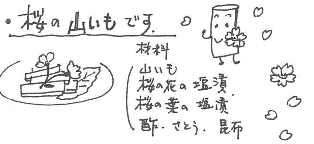 ・桜の山いもです.
材料
山いも
桜の花の塩漬
桜の葉の塩漬
酢.さとう.昆布